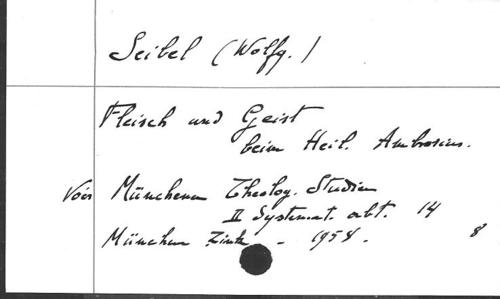 Seibel (Wolfg.)
Fleisch und Geist
beim Heil. Ambrosius.
Voir Münchener Theolog. Studien
II Systemat. abt. 14
München Zink - 1958. 8